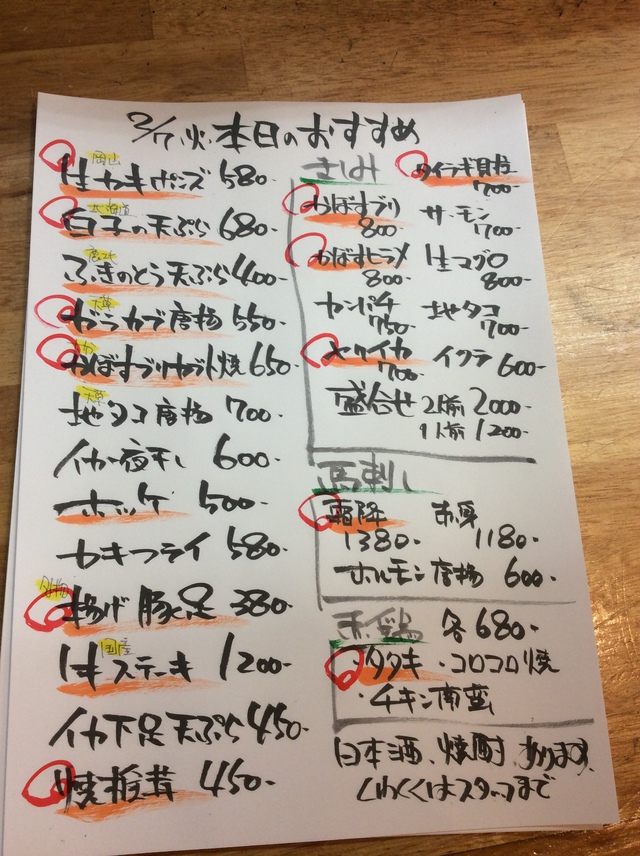 2/7(火)本日のおすすめ
岡山
生カキポン酢 580-
北海道
白子の天ぷら 680-
ふきのとう天ぷら 400-
天草
ガラカブ唐揚 550-
かぼすブリカブト焼 650-
天草
地タコ唐揚 700-
イカ一夜干し 600-
ホッケ 500-
カキフライ 580-
揚げ豚足 380-
国産
牛ステーキ 1200-
イカ下足天ぷら 450-
焼椎茸 450-
さしみ
タイラギ貝柱
700-
かぼすブリ
800-
サーモン
700-
かぼすヒラメ
800-
生マグロ
800-
カンパチ
750-
地タコ
700-
700-
イクラ 600-
盛合せ 2人前 2000-
1人前 1200-
馬刺し
霜降
1380-
赤身
1180-
ホルモン唐揚 600-
赤鶏 各680-
タタキ ・コロコロ焼
・チキン南蛮
日本酒、焼酎あります
くわしくはスタッフまで